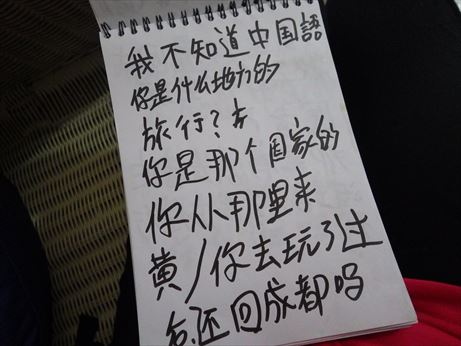 我不知道中国語
你是什么地方的
旅行?去
你是那个国家的
你从那里来
黄/你去玩了过
后还回成都吗